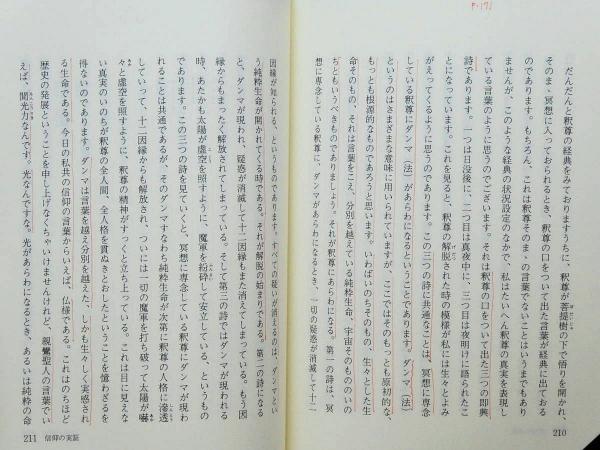 P.171
だんだんと釈尊の経典をみておりますうちに、釈尊が菩提樹の下で悟りを開かれ、
そのまゝ冥想に入っておられるとき、釈尊の口をついて出た言葉が経典に出ておる
のであります。もちろん、これは釈尊そのまゝの言葉でないことはいうまでもあり
ませんが、このような経典の状況設定のなかで、私はたいへん釈尊の真実を表現し
ている言葉のように思うのでございます。それは釈尊の口をついて出た三つの即興
詩であります。一つは日没後に、二つ目は真夜中に、三つ目は夜明けに語られたこ
とになっています。これを見ると、釈尊の解脱された時の模様が私には生々とよみ
がえってくるように思うのであります。この三つの詩に共通なことは、冥想に専念
している釈尊にダンマ（法）があらわになるということであります。ダンマ（法）
というのはさまざまな意味に用いられていますが、ここではそのもっとも原初的な、
もっとも根源的なものであろうと思います。いわばいのちそのもの、生々とした生
命そのもの、それは言葉をこえ、分別を越えている純粋生命、宇宙そのもののいの
ちともいうべきものでありましょう。それが釈尊にあらわになる。第一の詩は、冥
想に専念している釈尊に、ダンマがあらわになるとき、一切の疑惑が消滅して十二
210
因縁が知られる、というものであります。すべての疑いが消えるのは、ダンマとい
う純粋生命が開かれてくる時である。それが解脱の始まりである。第二の詩になる
と、ダンマが現われ、疑惑が消滅して十二因縁もまた消えてしまっている。もう因
縁からもまったく解放されてしまっている。そして第三の詩ではダンマが現われる
時、あたかも太陽が虚空を照すように、魔軍を粉砕して安立している、というもの
であります。この三つの詩を見ていくと、冥想に専念している釈尊にダンマが現わ
れることは共通であるが、そのダンマすなわち純粋生命が次第に釈尊の人格に滲透
していって、十二因縁からも解放され、ついには一切の魔軍を打ち破って太陽が嚇
々と虚空を照すように、釈尊の精神がすっくと立ち上っている。これは目に見えな
い真実のいのちが釈尊の全人間、全人格を貫ぬきとおしたということを憶わざるを
得ないのであります。ダンマは言葉を越え分別を越えた、しかも生々しく実感され
る生命である。今日の私共の信仰の言葉からいえば、仏様である。これはのちほど
歴史の発展ということを申し上げなくちゃいけませんけれど、親鸞聖人の言葉でい
えば、無光力なんです。光なんですな。光があらわになるとき、あるいは純粋の命
211 信仰の実証